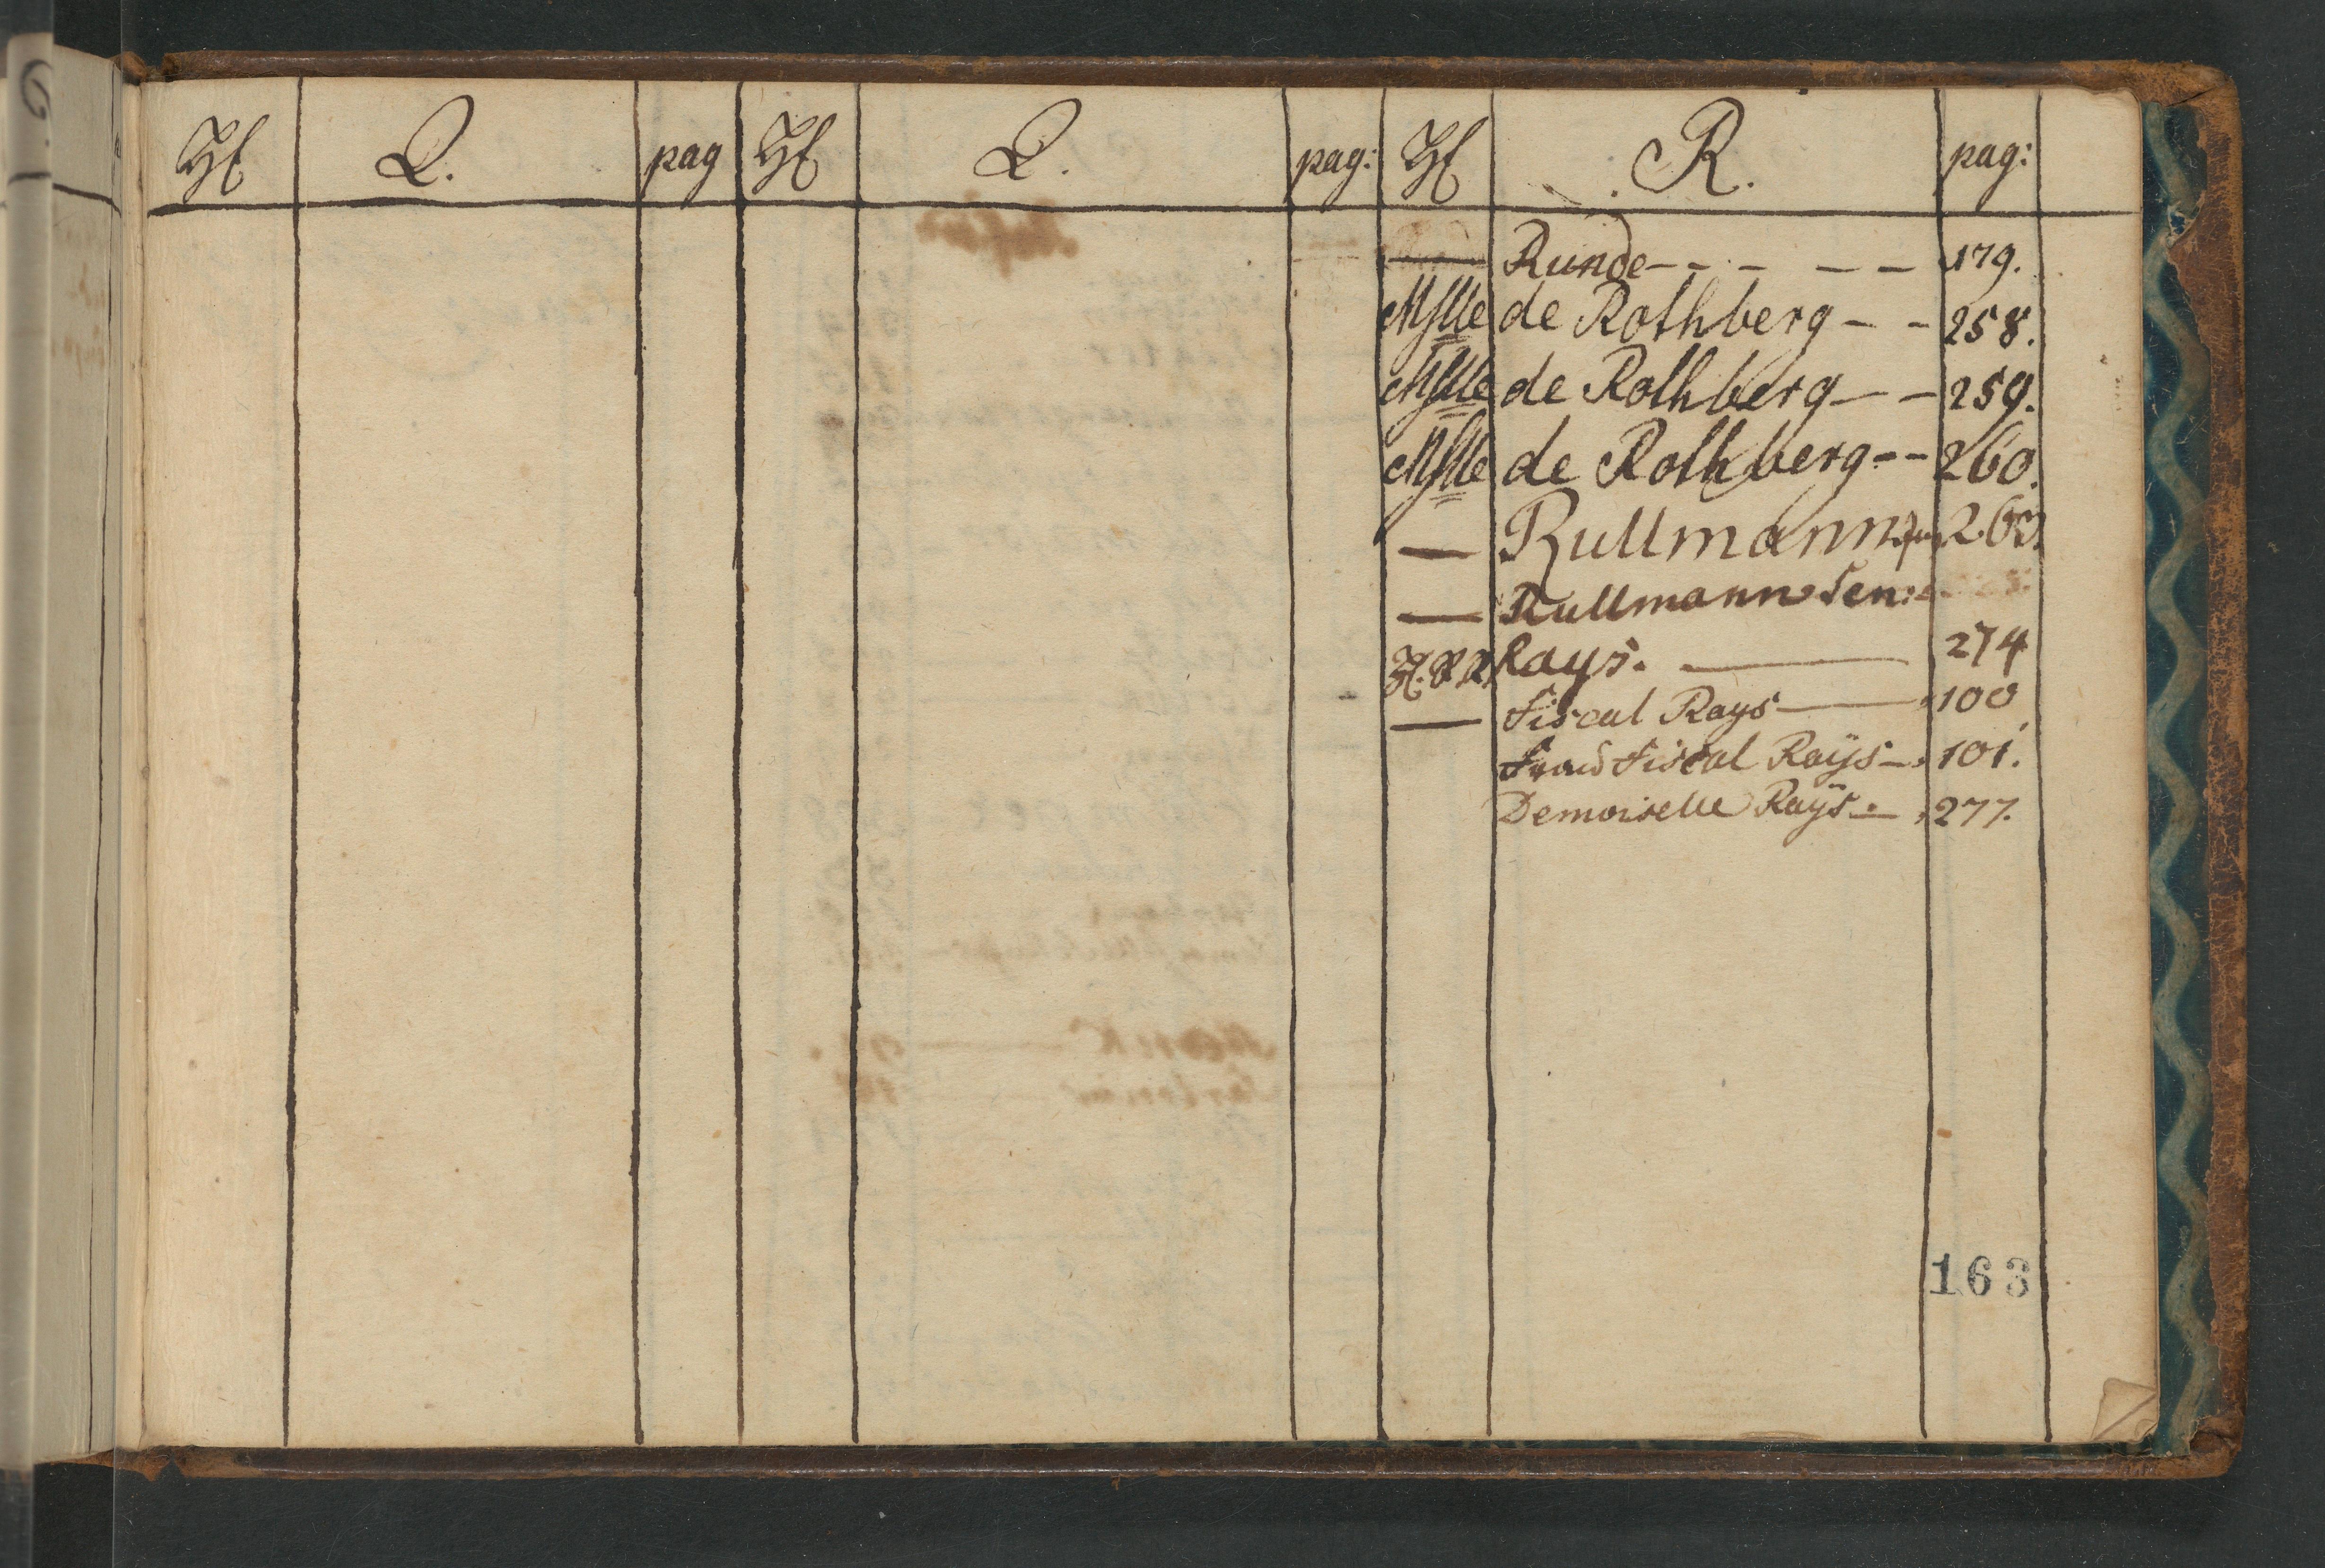 H Q. pag H Q. pag: H R. pag:
— Runde - - - - - 179.
Mslle de Rothberg - - 258.
Mslle de Rothberg - - 259.
Mslle de Rothberg - - 260.
— Rullmann jun
— Rullmann Sen:
H. Rays. — 274
— Fiscal Rays — 100
Frau Fiscal Raÿs — 101.
Demoiselle Raÿs. — 277.
163